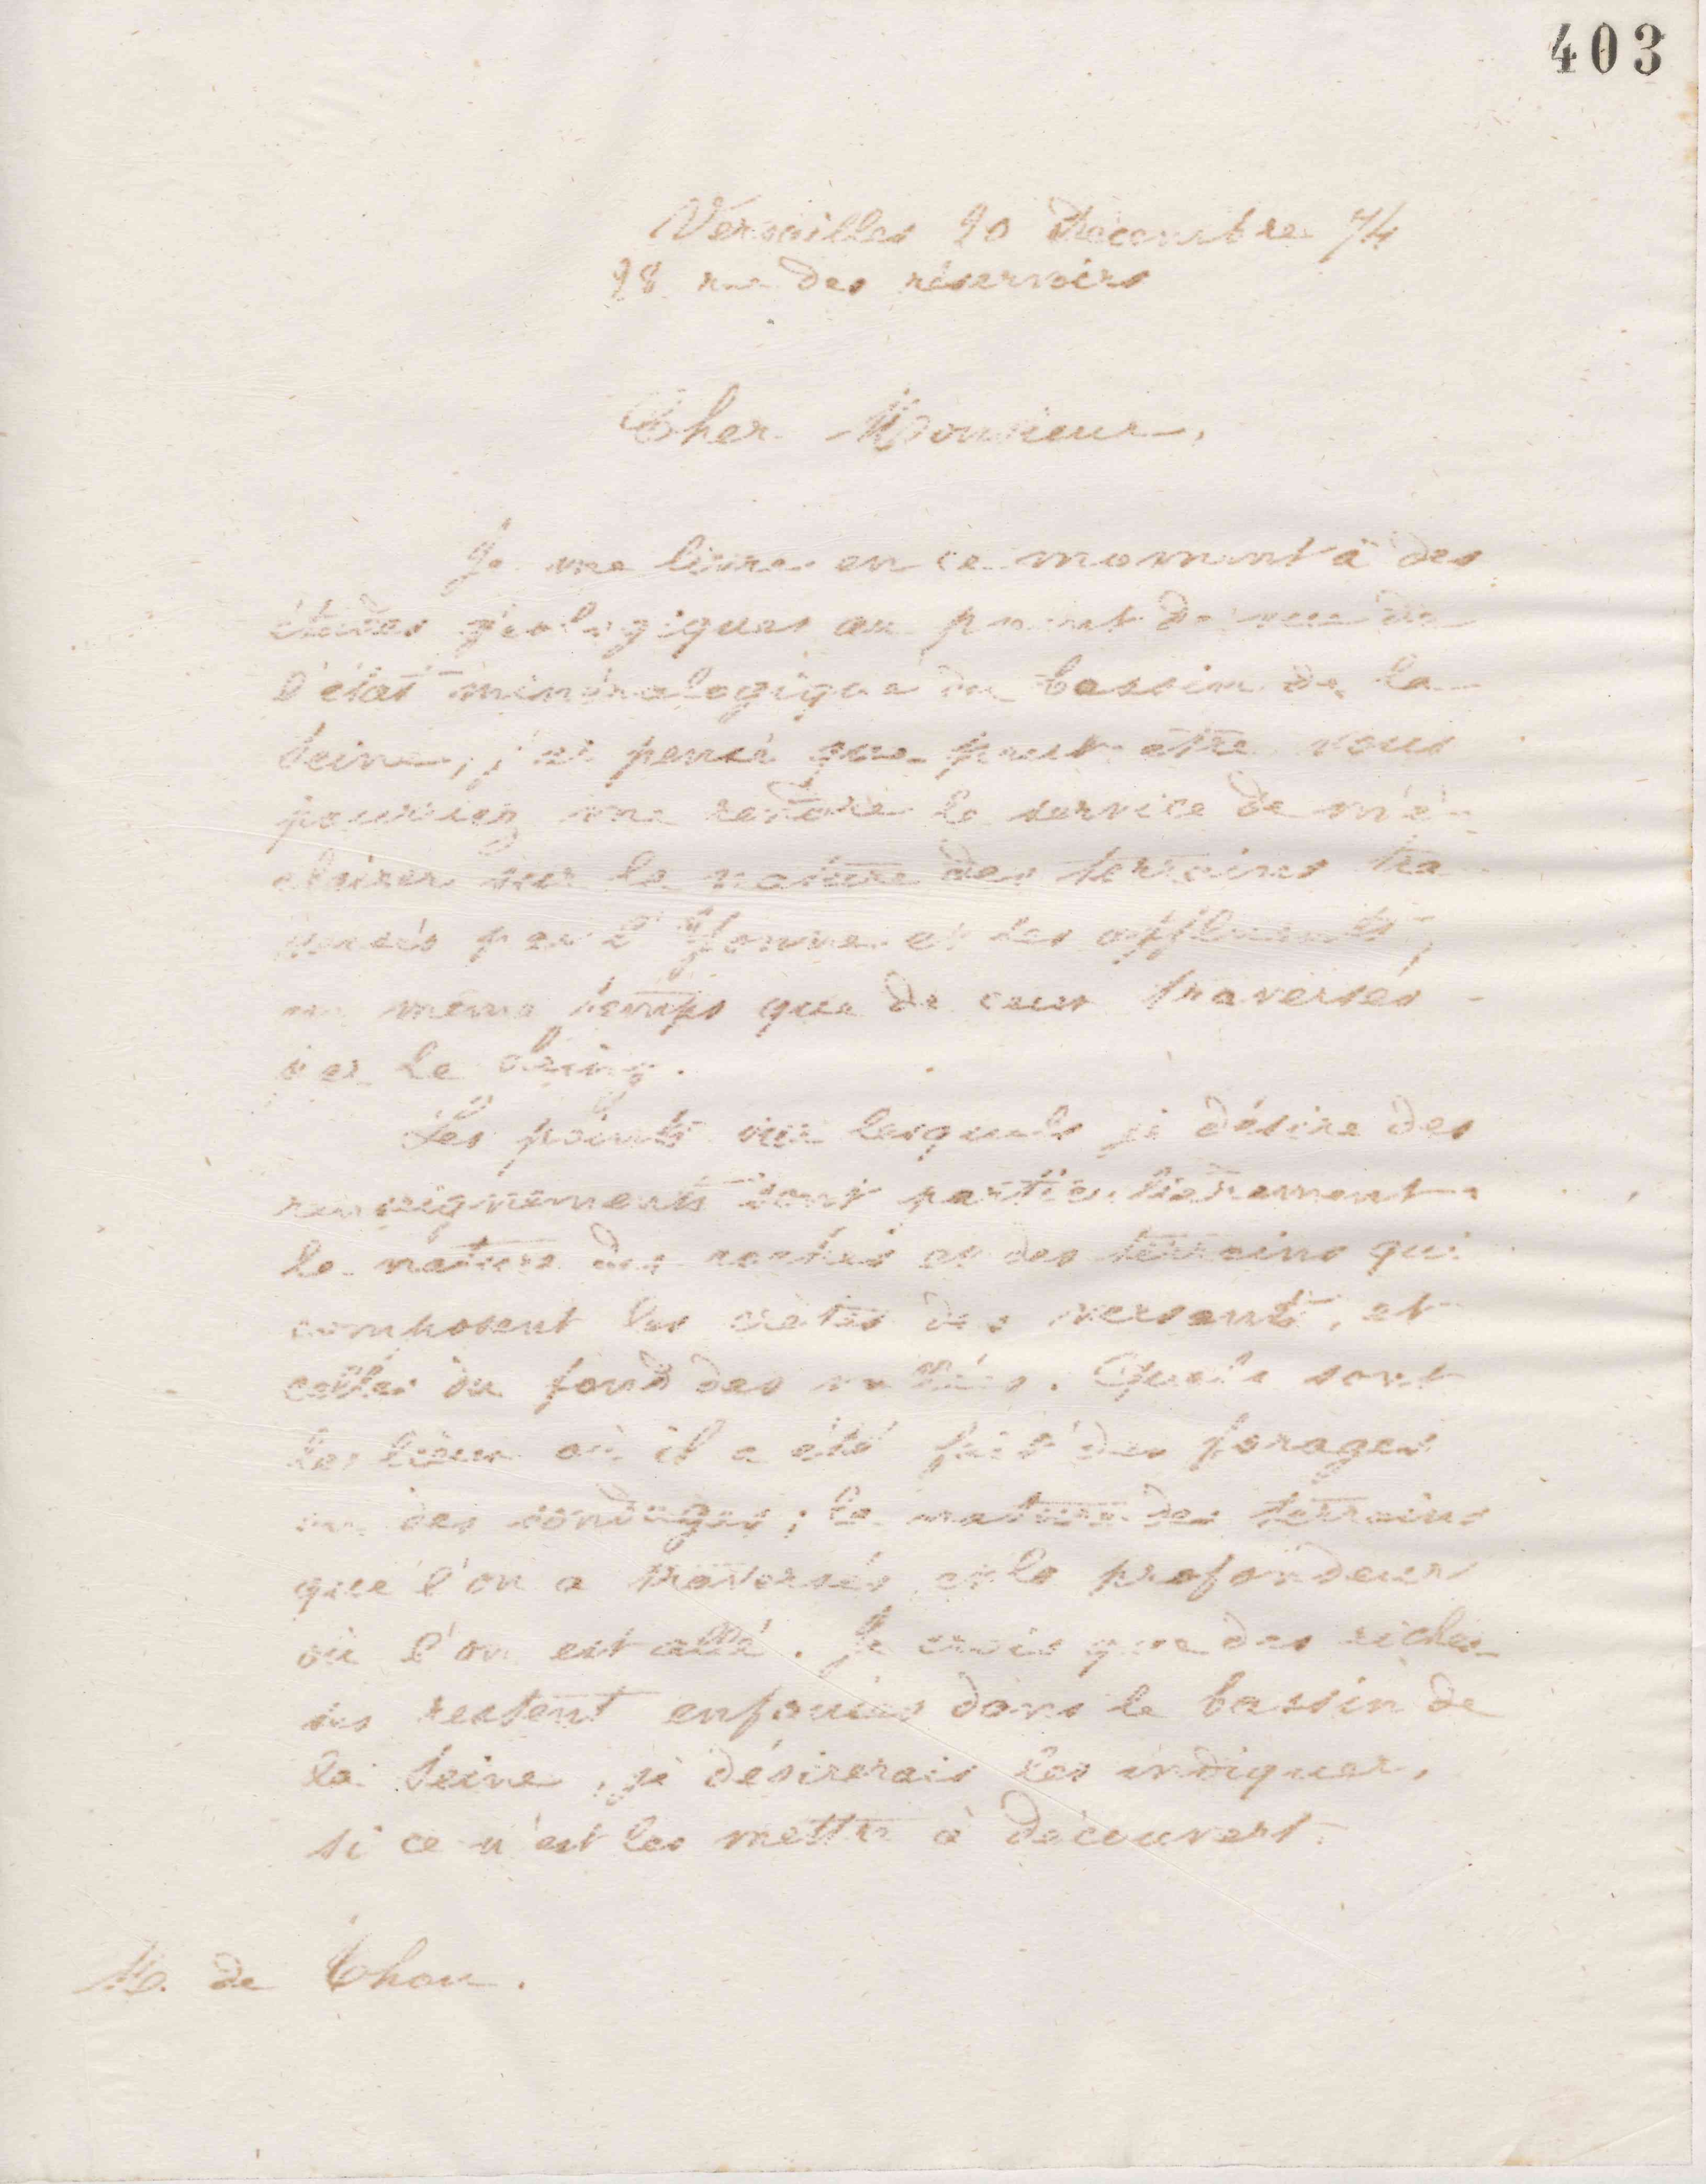 403
Versailles 20 Décembre 74
28 rue des réservoirs
Cher Monsieur,
Je me livre en ce moment à des
études géologiques au point de vue de
l'état minéralogique du bassin de la
Seine, j'ai pensé que peut être vous
pourriez me rendre le service de m'é-
clairer sur la nature des terrains tra
versés par l'Yonne et ses affluents,
en même temps que de ceux traversés
par le Loing.
Les points sur lesquels je désire des
renseignements sont particulièrement
la nature des roches et des terrains qui
composent les crêtes des versants, et
celles du fond des vallées. Quels sont
les lieux où il a été fait des forages
ou des sondages ; la nature des terrains
que l'on a traversés et la profondeur
où l'on est allé. Je crois que des riches-
ses restent enfouies dans le bassin de
la Seine, je désirerais les indiquer,
si ce n'est les mettre à découvert.
M. de Thou.